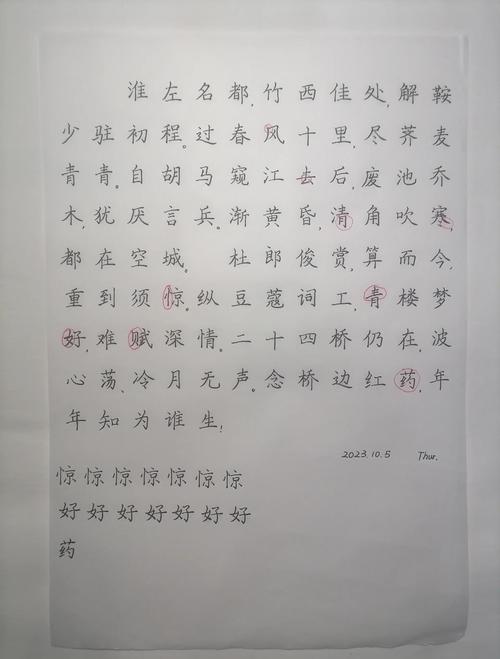 淮左名都,竹西佳处,解鞍
少驻初程。过春风十里,尽荠麦
青青。自胡马窥江去后,废池乔
木,犹厌言兵。渐黄昏,清角吹寒,
都在空城。 杜郎俊赏,算而今,
重到须惊。纵豆蔻词工,青楼梦
好,难赋深情。二十四桥仍在,波
心荡、冷月无声。念桥边红药,年
年知为谁生!
2023.10.5 Thur.
惊惊惊惊惊惊惊
好好好好好好好
药